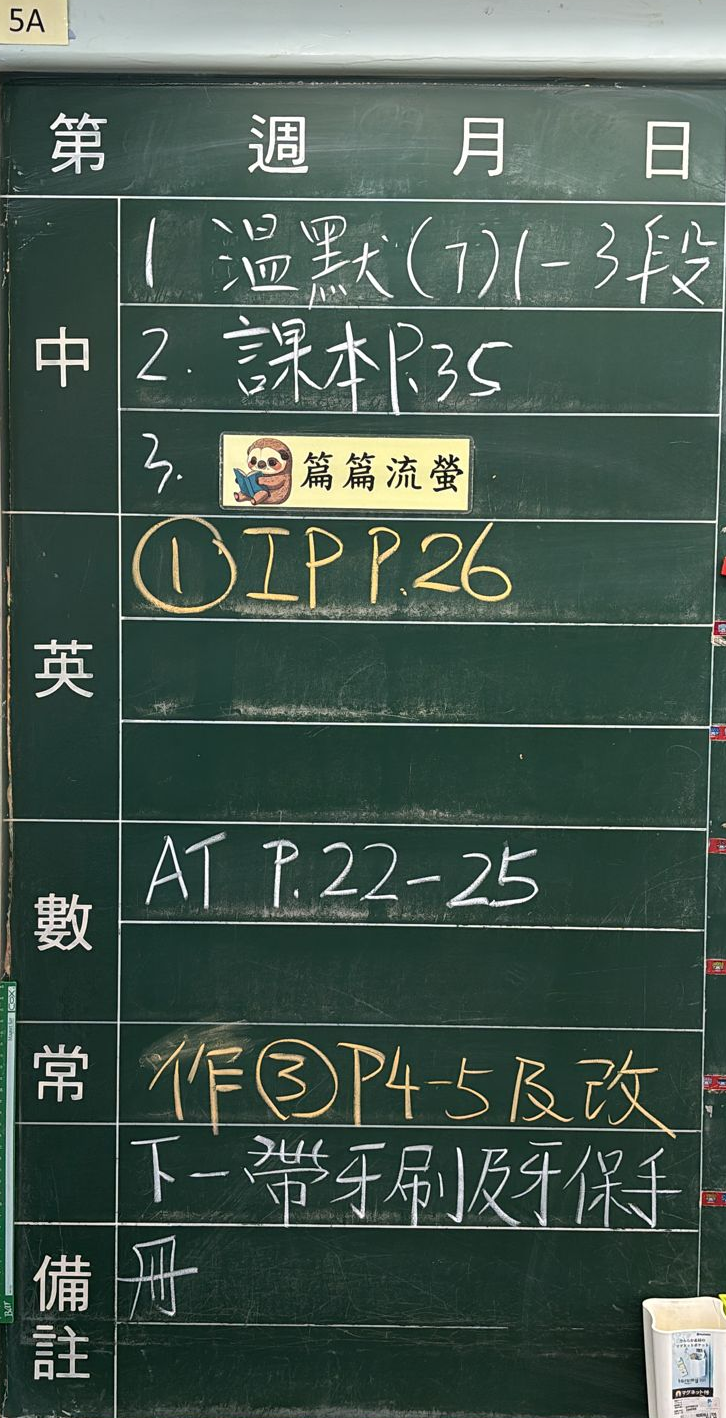 5A
第 週 月 日
中
1 溫默(7)1-3段
2. 課本P.35
3. 篇篇流螢
英
①IP P.26
數
AT P.22-25
常
作③P4-5及改
下一帶牙刷及牙保手
備註
冊